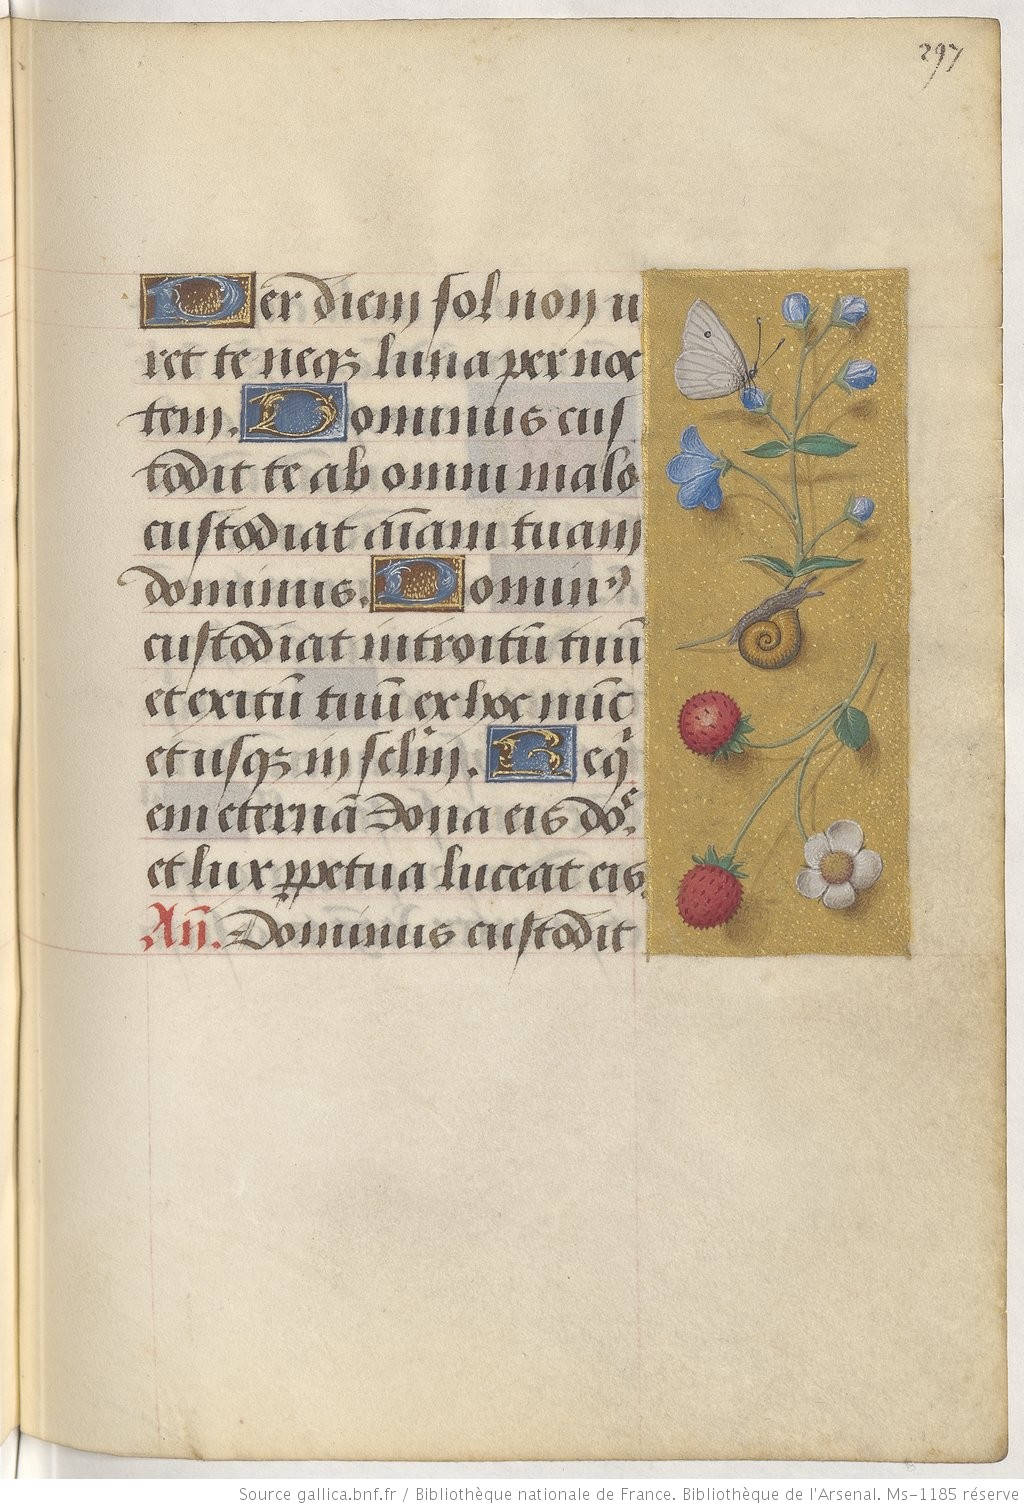 297
Per diem sol non u
ret te neqꝫ luna per noc
tem. Dominus cus
todit te ab omni malo
custodiat aīam tuam
dominus. Dominꝰ
custodiat introitū tuū
et exitū tuū ex hoc nūc
et usqꝫ in sclm̄. Req̄
em eternā dona eis doᵉ.
et lux ꝑpetua luceat eis.
An̄. Dominus custodit
Source gallica.bnf.fr / Bibliothèque nationale de France. Bibliothèque de l'Arsenal. Ms-1185 réserve